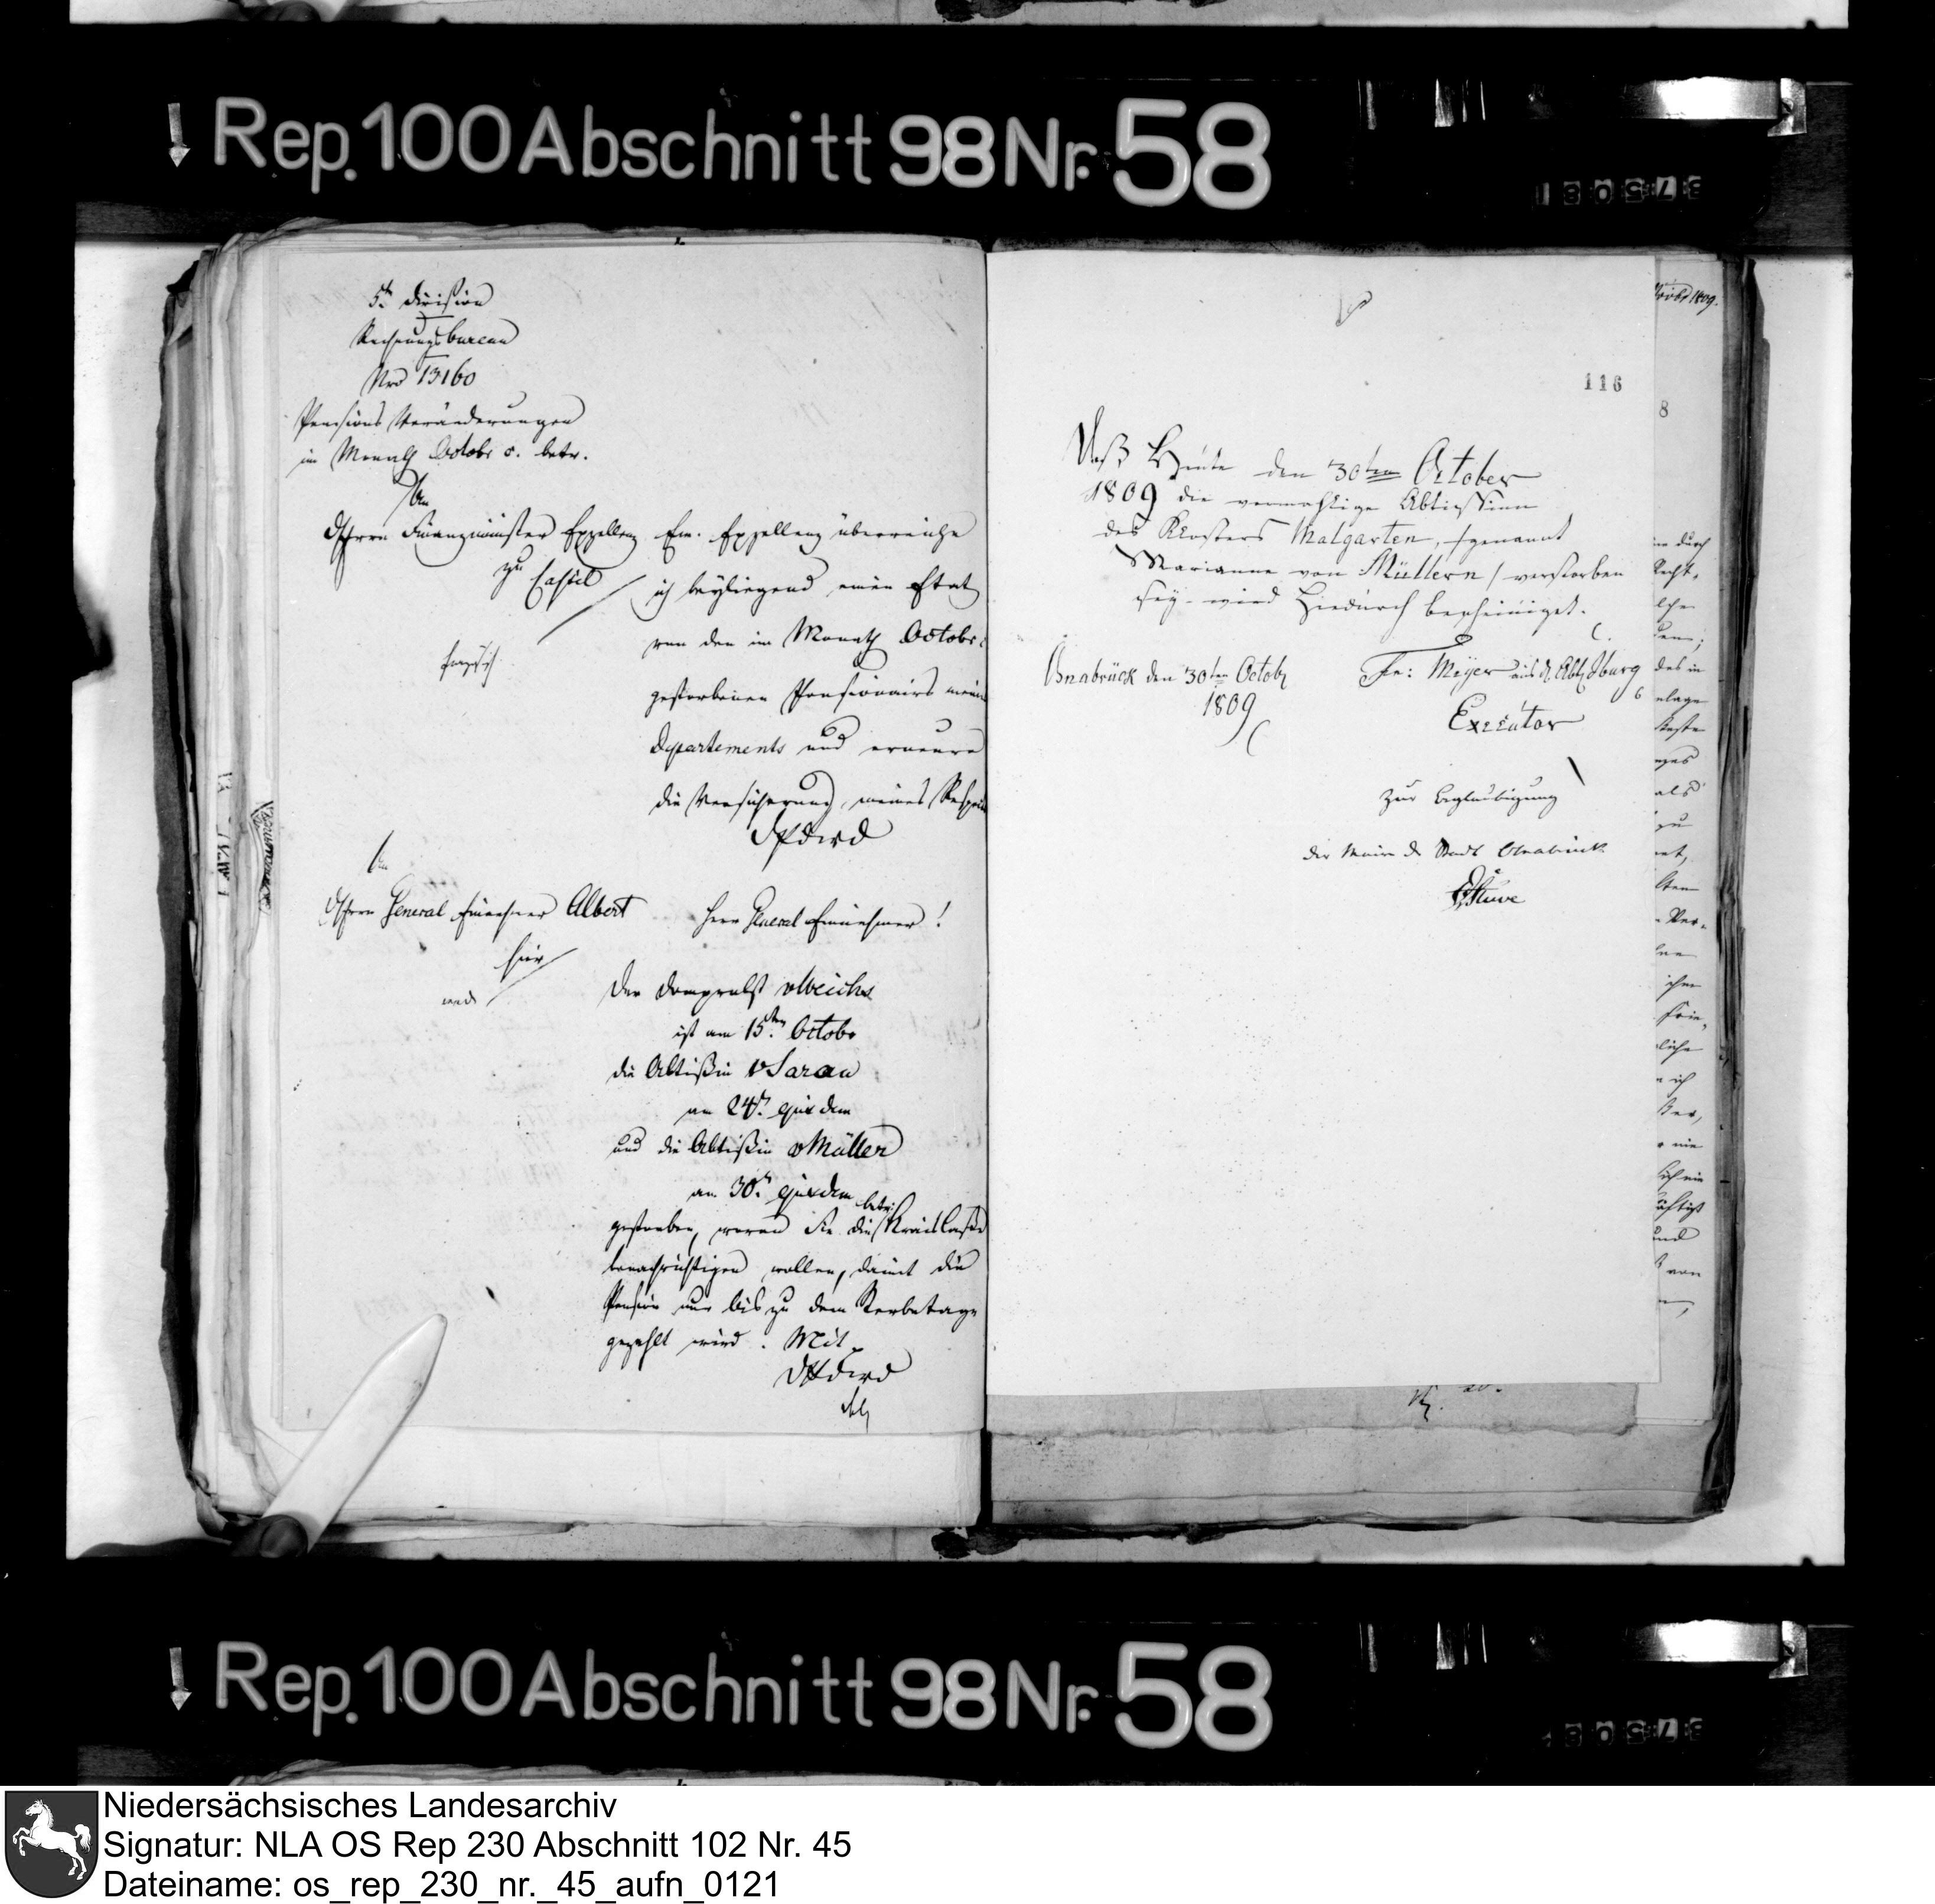 Rep. 100 Abschnitt 98 Nr. 58
5te Division
Rechnungsbureau
Nro 13160
Pensions Veränderungen
im Monath Octobr c. betr.
An
Herrn Finanzminister Exzellenz
zu Cassel
Ew. Exzellenz überreiche
ich beyliegend einen Etat
von den im Monath Octobr
gestorbenen Pensionairs meines
Departements und erneure
die Versicherung meines Respects
An
Herrn General Einnehmer Albert
hier
Herr General Einnehmer!
Der Domprobst vWeichs
ist am 15ten Octobr
die Abtißin v Saran
am 24t. ejusdem
und die Abtißin v Müller
am 30t. ejusdem
gestorben, wovon Sie die betr. Kreiskasse
benachrichtigen wollen, damit die
Pension nur bis zu dem Sterbetage
gezahlt wird. Mit
116
Daß Heute den 30ten October
1809 die vormahlige Abtissinn
des Klosters Malgarten, /genannt
Marianne von Müllern/ verstorben
sey - wird Hiedurch bescheiniget.
Osnabrück den 30ten Octob
1809
Fr: Meyer aus d. Abtey Iburg
Executor
Zur Beglaubigung
der Maire der Stadt Osnabrück
Stüve
8
Rep. 100 Abschnitt 98 Nr. 58
Niedersächsisches Landesarchiv
Signatur: NLA OS Rep 230 Abschnitt 102 Nr. 45
Dateiname: os_rep_230_nr._45_aufn_0121